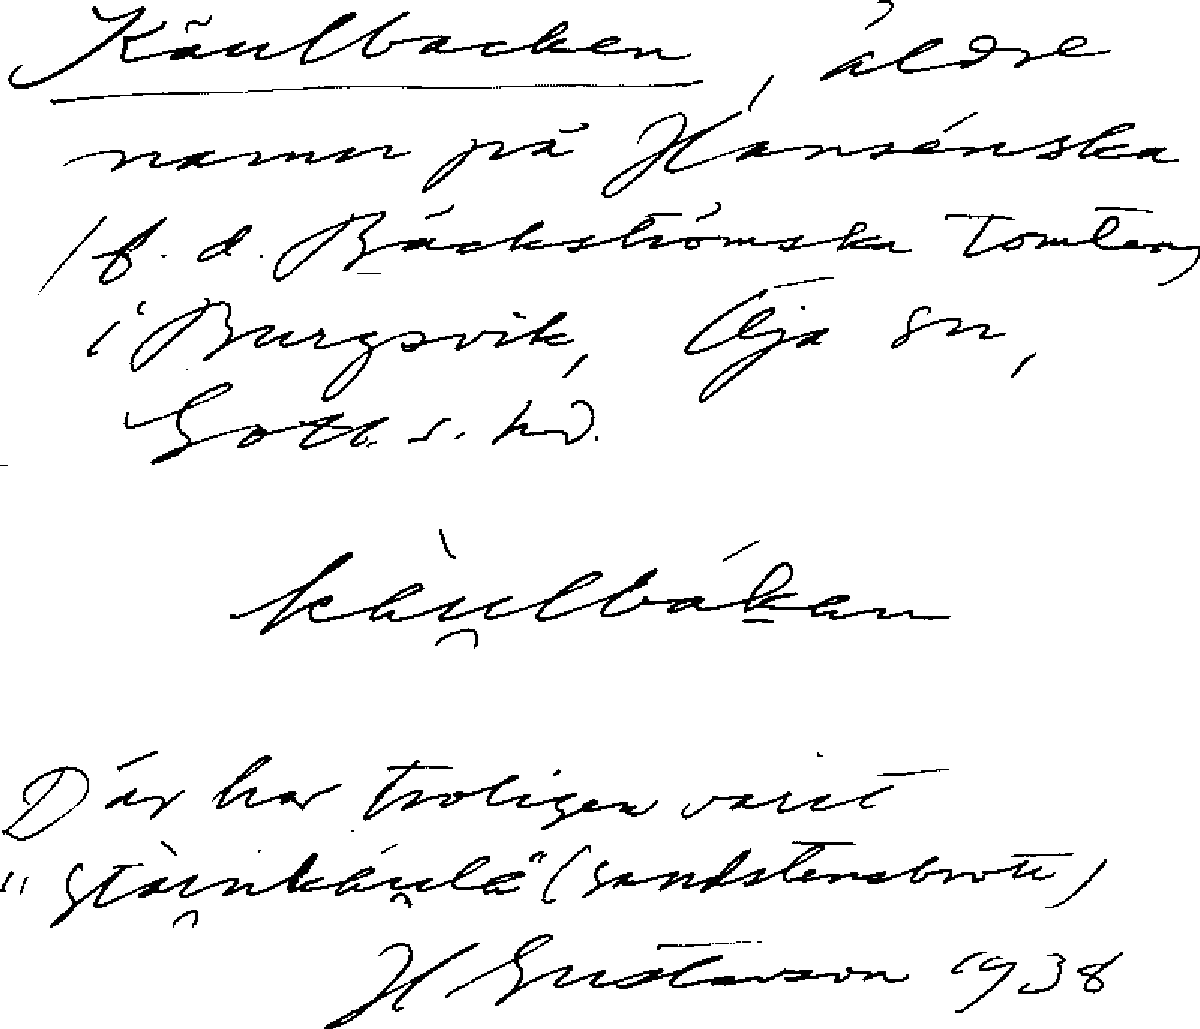 Käulbacken, äldre
namn på Hansénska
/f. d. Bäckströmska tomten,
i Burgsvik, Öja sn,
Gotl. s. hd.
käu̯lbákan
Där har troligen varit
"stäi̯nkáu̯lä" (sandstensbrott)
H Gustavson 1938